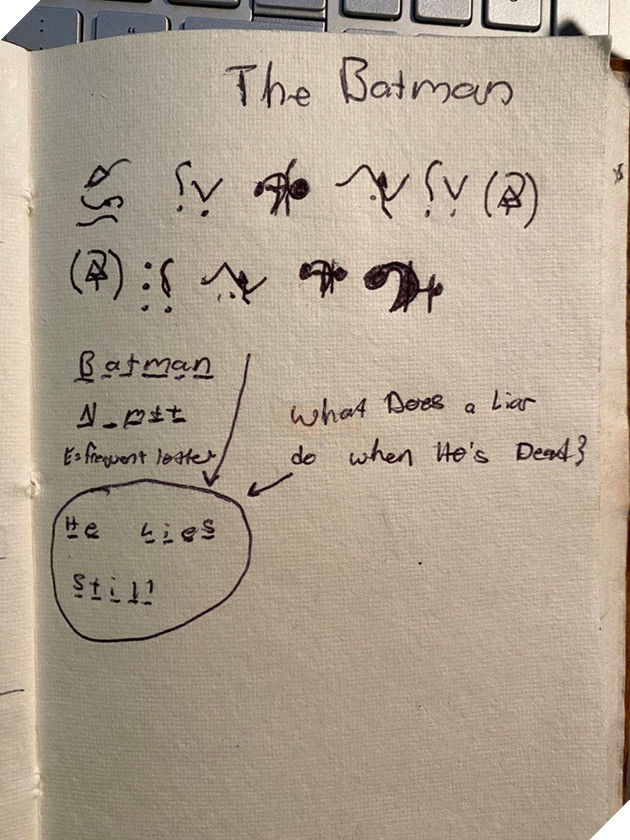 The Batman
Batman
E = frequent letter
What Does a Liar
do when He's Dead?
He Lies
Still